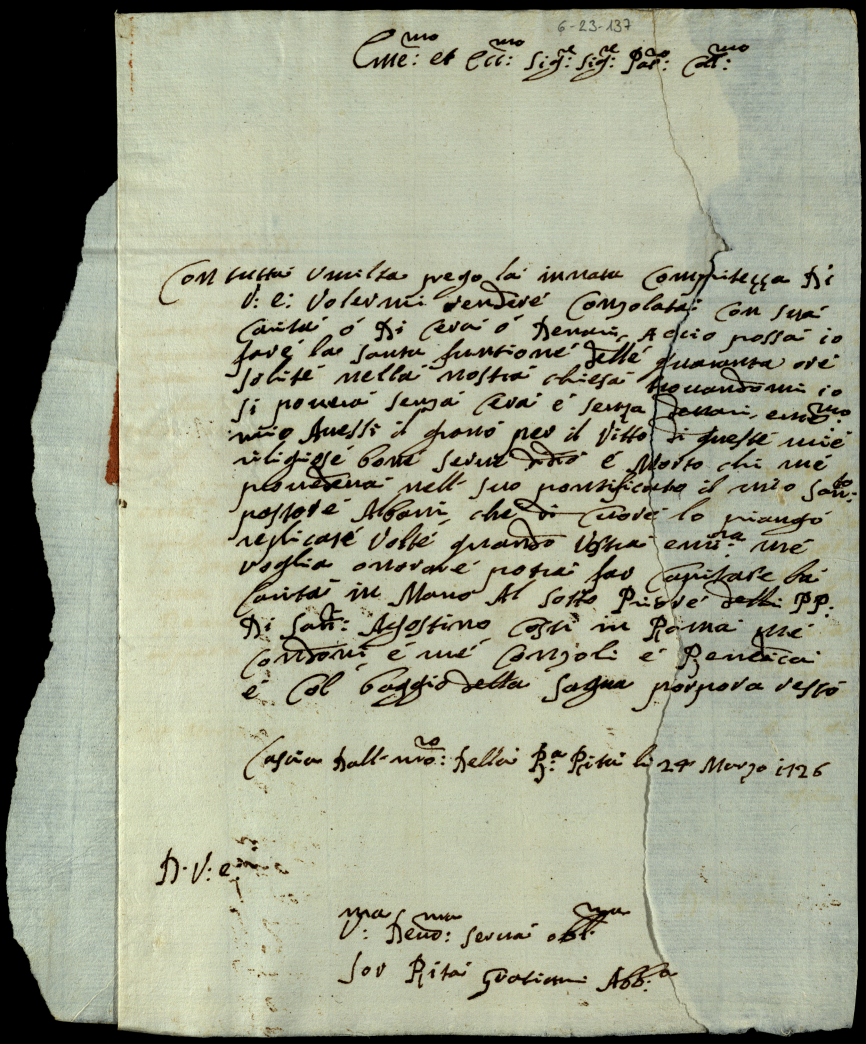 6-23-137
Eme:mo et Ecc:mo Sig:re Sig:re Pad:ro Col:mo
Con tutta Umilta prego la innata Compitezza Di
V: e: Volermi rendere Consolata con sua
Carita ó Di Cera ó Denari, Acio possa io
fare la Santa funtione delle quaranta ore
Solite nella nostra chiesa trouandomi io
si pouera senza Cera é senza denari, em:mo
mio Auessi il grano per il Vitto di queste mie
religiose bone serue é Morto chi me
prouedeua nell suo pontificato il mio San:to
pastore Albani, che di Core lo piango
replicate Volte quando Vostra emi:na me
voglia onorare potra far Capitare la
Carita in Mano Al Sotto Priore delli PP.
Di San: Agostino Costi in Roma me
condoni é me Consoli é Benedica
é Col baggio della Sagra porpora resto
Cascia Dall mro: Della B:a Rita li 24 Marzo 1726
D. V: e:
V:ma Deuo:ma Serua obl:ma
Sor Rita Abb:a